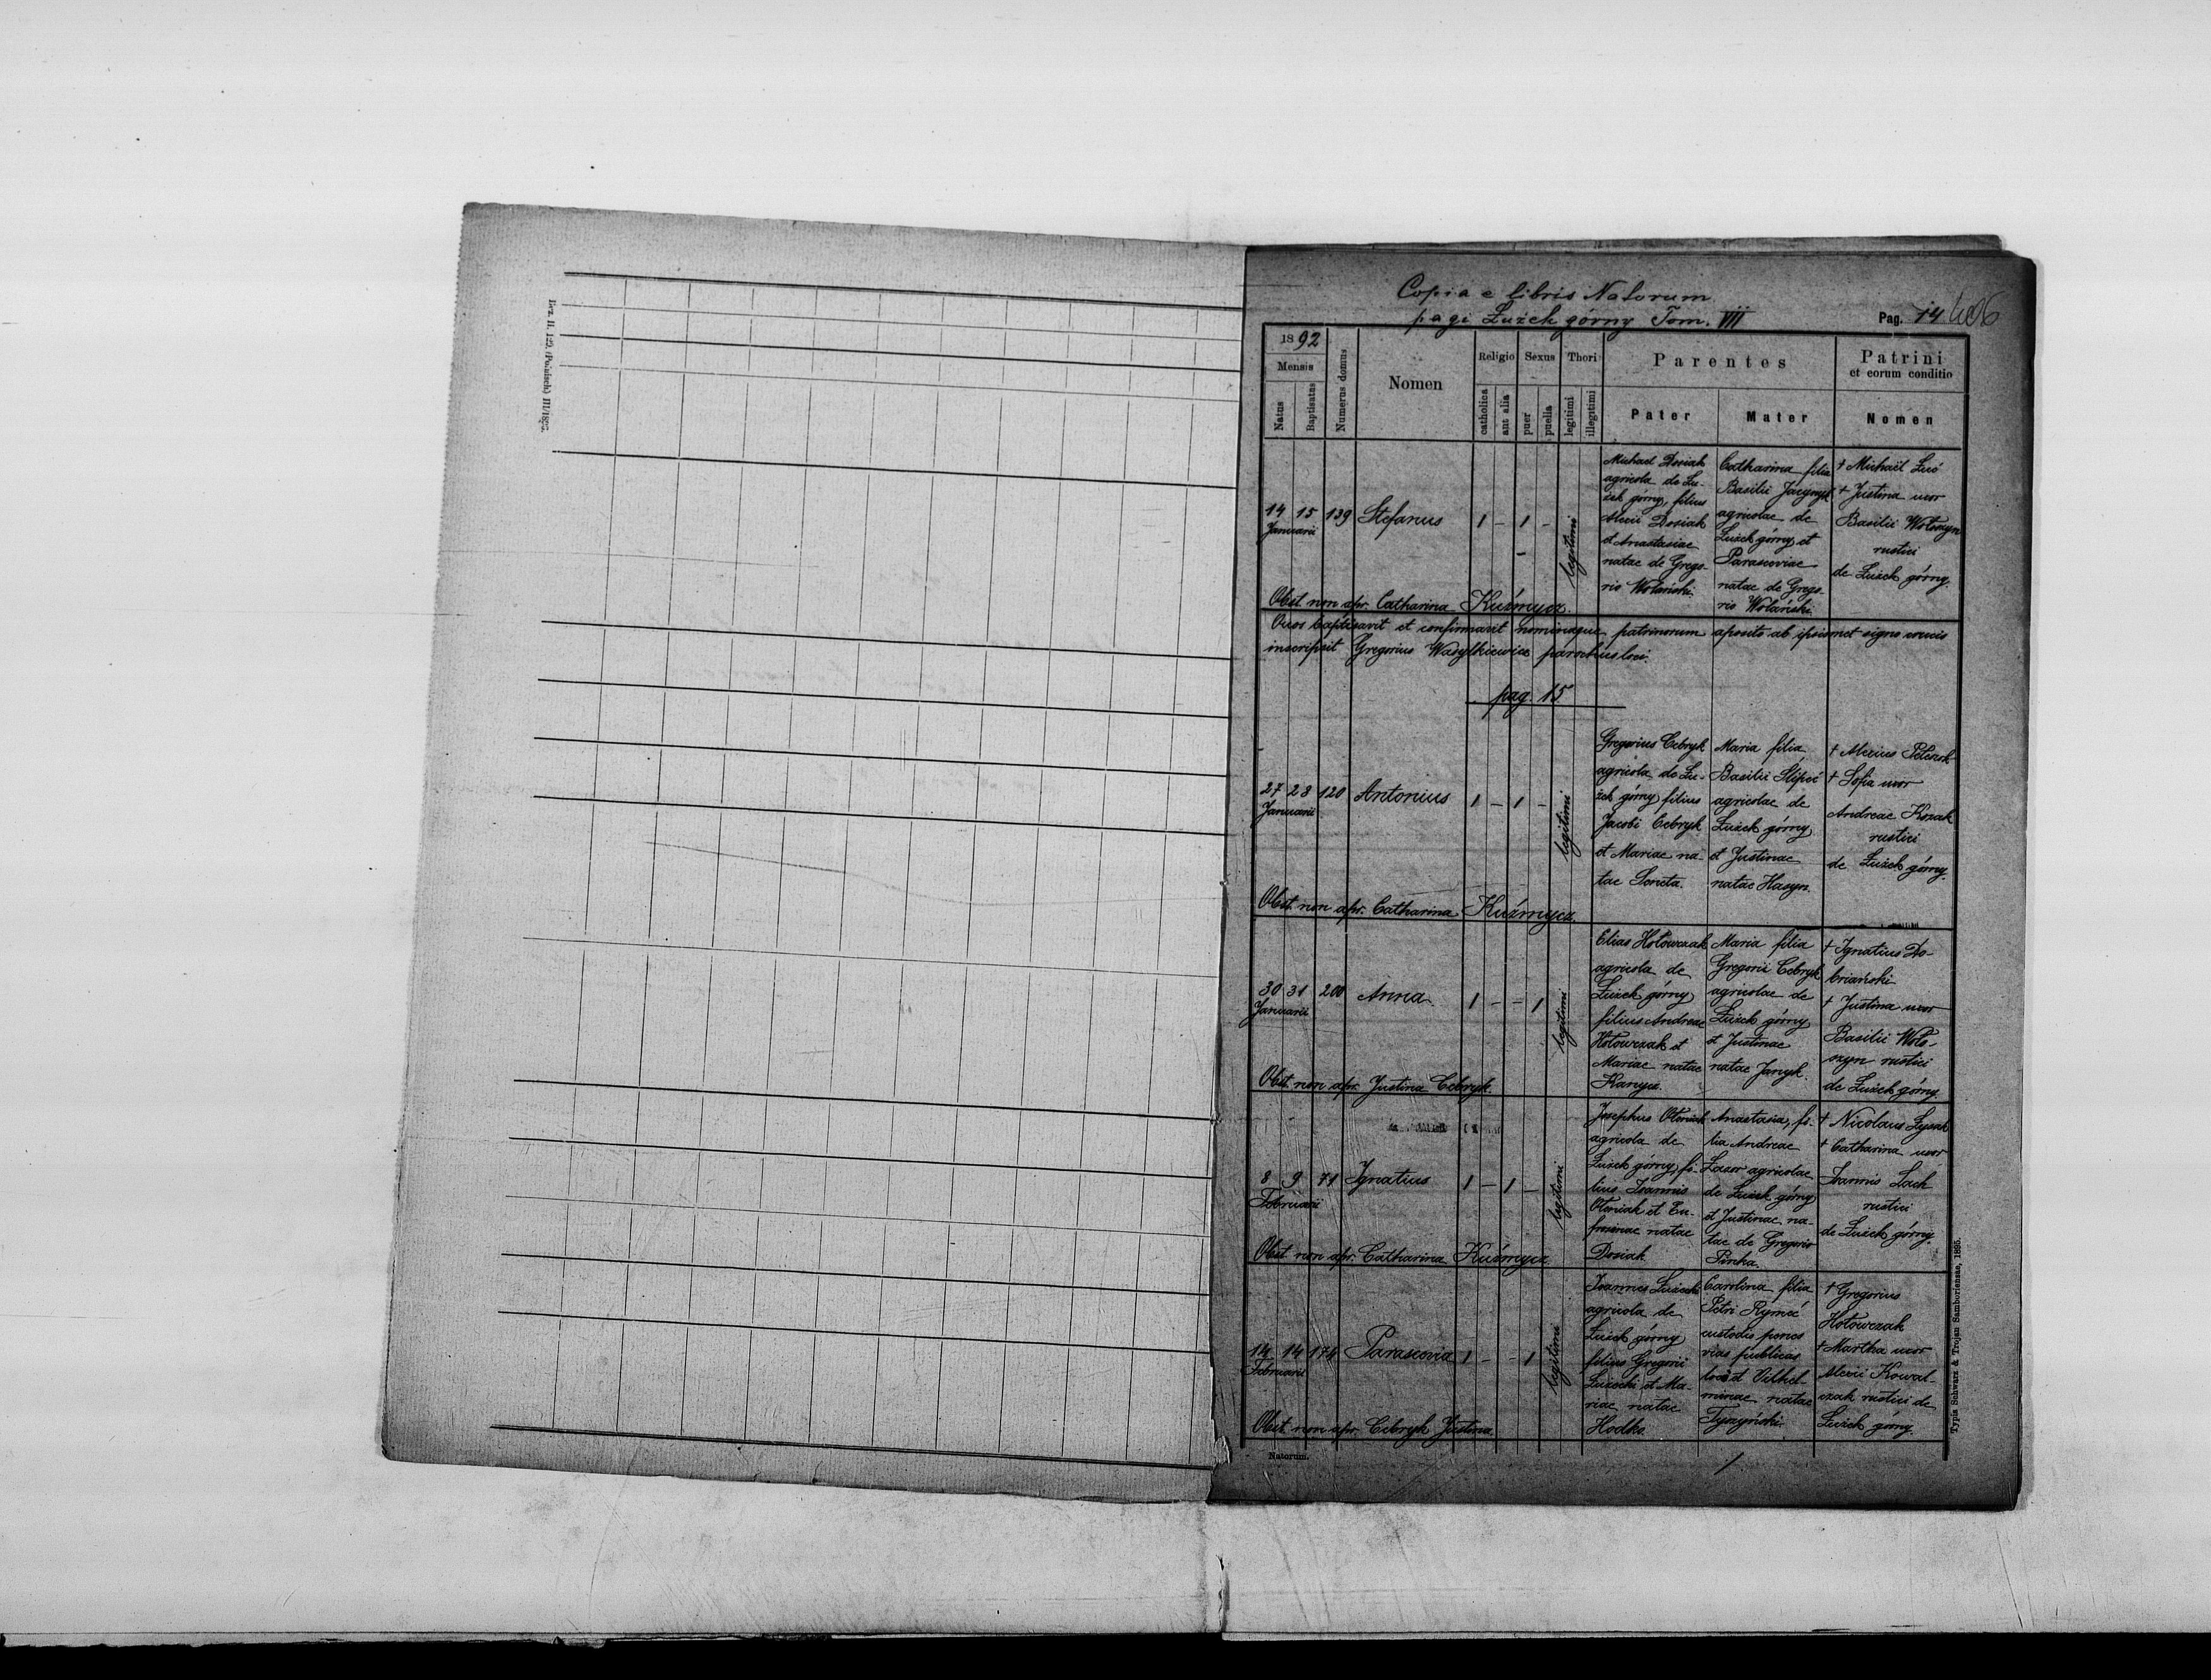 Copia e libris Natorum
pagi Łużek górny Tom. VII
Pag. 14
1892
Mensis
Natus
Baptisatus
Numerus domus
Nomen
Religio
catholica
aut alia
Sexus
puer
puella
Thori
legitimi
illegitimi
Parentes
Pater
Mater
Patrini
et eorum conditio
Nomen
14 15 139 Stefanus 1 – 1 –
Januarii
legitimi
Michael Dosiak
agricola de Łu-
żek górny, filius
Alexii Dosiak
et Anastasiae
natae de Grego-
rio Wolański.
Catharina filia
Basilii Jacynyk
agricolae de
Łużek górny et
Parasceviae
natae de Grego-
rio Wolański.
+ Michaël Luć
+ Justina uxor
Basilii Wołoszyn
rustici
de Łużek górny.
Obst. non apr. Catharina Kuźmycz.
Quos baptisavit et confirmavit nominaque patrinorum aposito ab ipsismet signo crucis
inscripsit Gregorius Wasylkiewicz parochus loci.
pag. 15
27 28 120 Antonius 1 – 1 –
Januarii
legitimi
Gregorius Cebryk
agricola de Łu-
żek górny filius
Jacobi Cebryk
et Mariae na-
tae Soneta.
Maria filia
Basilii Slipeć
agricolae de
Łużek górny
et Justinae
natae Hasyn.
+ Alexius
+ Sofia uxor
Andreae Kozak
rustici
de Łużek górny.
Obst. non apr. Catharina Kuźmycz.
30 31 200 Anna 1 – – 1
Januarii
legitimi
Elias Hołowczak
agricola de
Łużek górny
filius Andreae
Hołowczak et
Mariae natae
Kanycz.
Maria filia
Gregorii Cebryk
agricolae de
Łużek górny
et Justinae
natae Janyk.
+ Ignatius Do-
briański
+ Justina uxor
Basilii Woło-
szyn rustici
de Łużek górny.
Obst. non apr. Justina Cebryk.
8 9 71 Ignatius 1 – 1 –
Februarii
legitimi
Josephus Oleniak
agricola de
Łużek górny, fi-
lius Joannis
Oleniak et Eu-
frosinae natae
Dosiak
Anastasia, fi-
lia Andreae
Lazor agricolae
de Łużek górny
et Justinae na-
tae de Gregorio
Pinka.
+ Nicolaus Łysak
+ Catharina uxor
Joannis Lach
rustici
de Łużek górny.
Obst. non apr. Catharina Kuźmycz
14 14 174 Parascevia 1 – – 1
Februarii
legitimi
Joannes Łużecki
agricola de
Łużek górny
filius Gregorii
Łużecki et Ma-
riae natae
Hodko.
Carolina filia
Petri Rymeć
custodis penes
vias publicas
et Vilhel-
minae natae
Tyszyński.
+ Gregorius
Hołowczak
+ Martha uxor
Alexii Kowal-
czak rustici de
Łużek górny
Obst. non apr. Cebryk Justina
Natorum.
1
Typis Schwarz & Trojan Samboriensae, 1895.